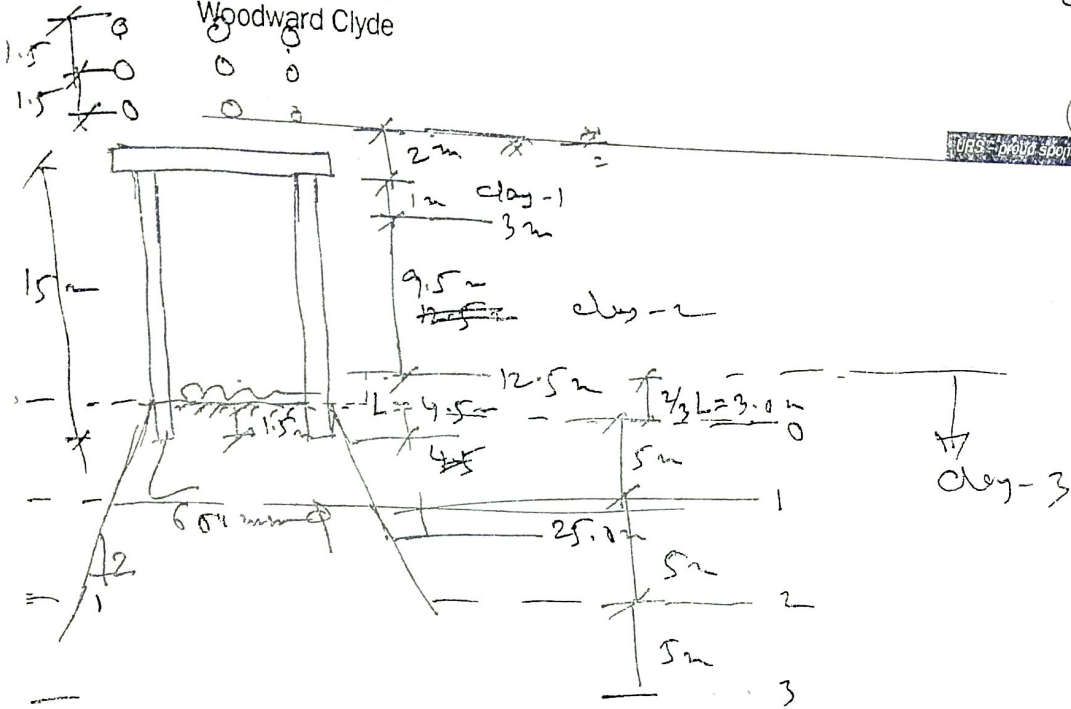 Woodward Clyde
1.5
1.5
URS - proud spon
2 m
1 m clay-1
3 m
15 m
9.5 m
clay-2
12.5 m
L = 4.5 m
2/3 L = 3.0 m
0
1.5 m
5 m
clay-3
1
25.0 m
2
1
5 m
2
5 m
3